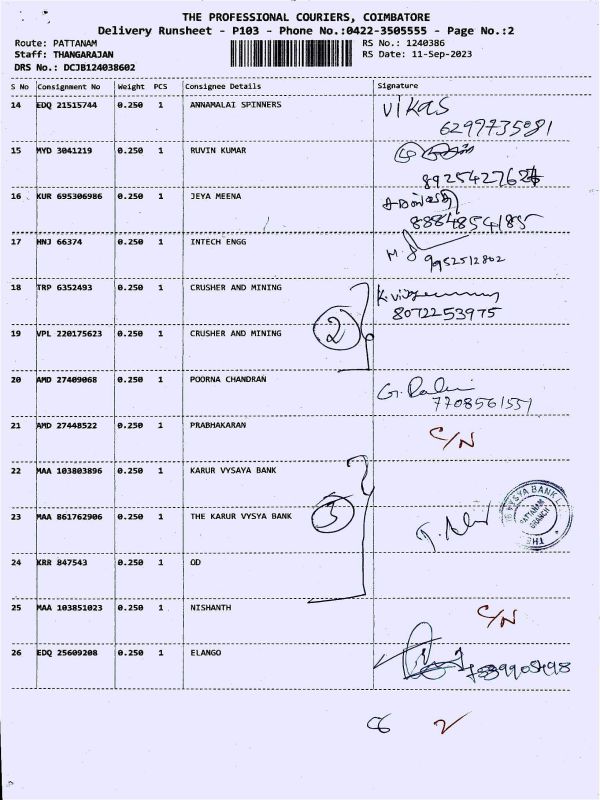 THE PROFESSIONAL COURIERS, COIMBATORE
Delivery Runsheet - P103 - Phone No.:0422-3505555 - Page No.:2
Route: PATTANAM RS No.: 1240386
Staff: THANGARAJAN RS Date: 11-Sep-2023
DRS No.: DCJB124038602
S No Consignment No Weight PCS Consignee Details Signature
14 EDQ 21515744 0.250 1 ANNAMALAI SPINNERS vikas
6297735081
15 MYD 3041219 0.250 1 RUVIN KUMAR
16 KUR 695306986 0.250 1 JEYA MEENA
17 HNJ 66374 0.250 1 INTECH ENGG
9952512802
18 TRP 6352493 0.250 1 CRUSHER AND MINING
8072253975
19 VPL 220175623 0.250 1 CRUSHER AND MINING 2
20 AMD 27409068 0.250 1 POORNA CHANDRAN
7708561551
21 AMD 27448522 0.250 1 PRABHAKARAN C/N
22 MAA 103803896 0.250 1 KARUR VYSAYA BANK
23 MAA 861762906 0.250 1 THE KARUR VYSYA BANK 3
VYSYA BANK
PATTANAM
BRANCH
THE
24 KRR 847543 0.250 1 OD
25 MAA 103851023 0.250 1 NISHANTH C/N
26 EDQ 25609208 0.250 1 ELANGO
2